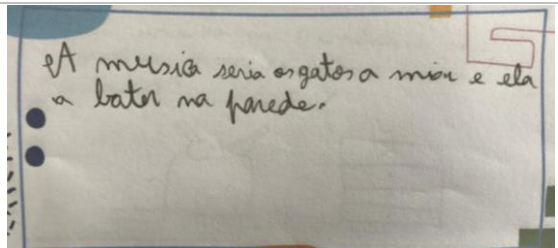 A musica seria os gatos a miar e ela
a bater na parede.